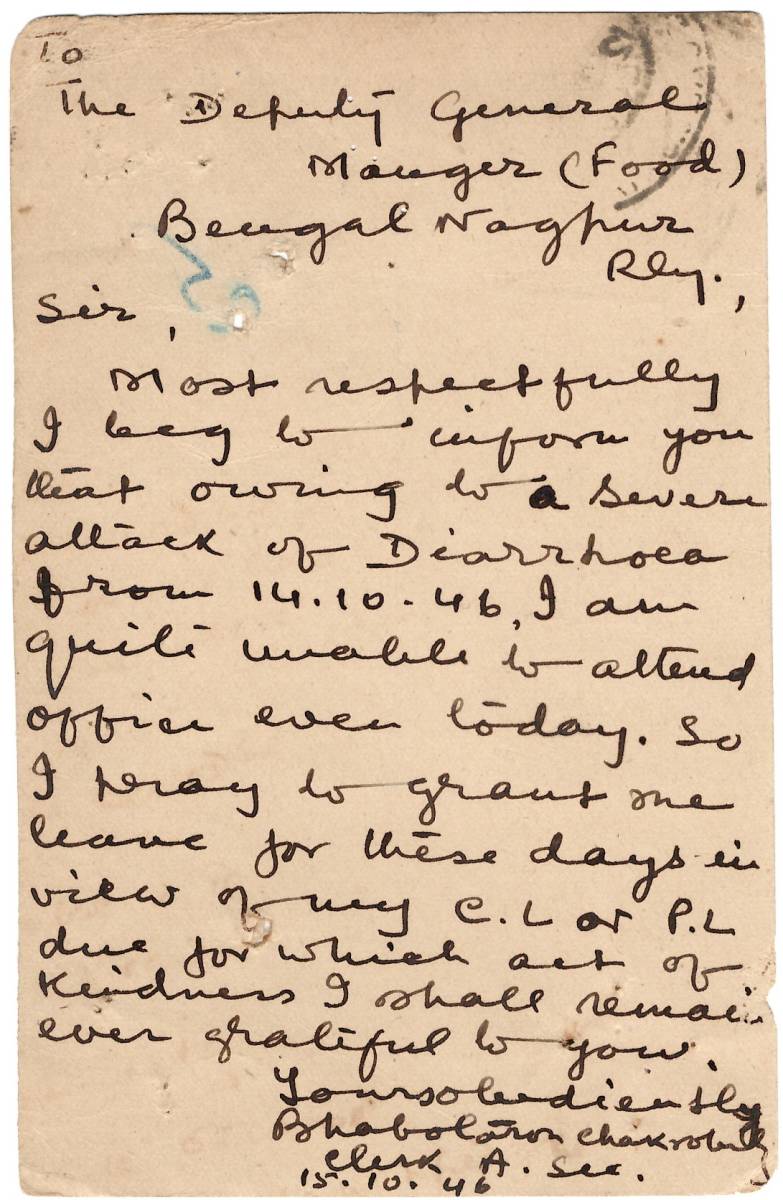 To
The Deputy General
Manger (Food)
Bengal Nagpur
Rly.,
Sir,
Most respectfully
I beg to inform you
that owing to a severe
attack of Diarrhoea
from 14.10.46, I am
quite unable to attend
office even today. So
I pray to grant me
leave for these days in
view of my C.L or P.L
due for which act of
kindness I shall remain
ever grateful to you.
Yours obediently
Bhabotaron Chakroburty
Clerk A. Sec.
15.10.46